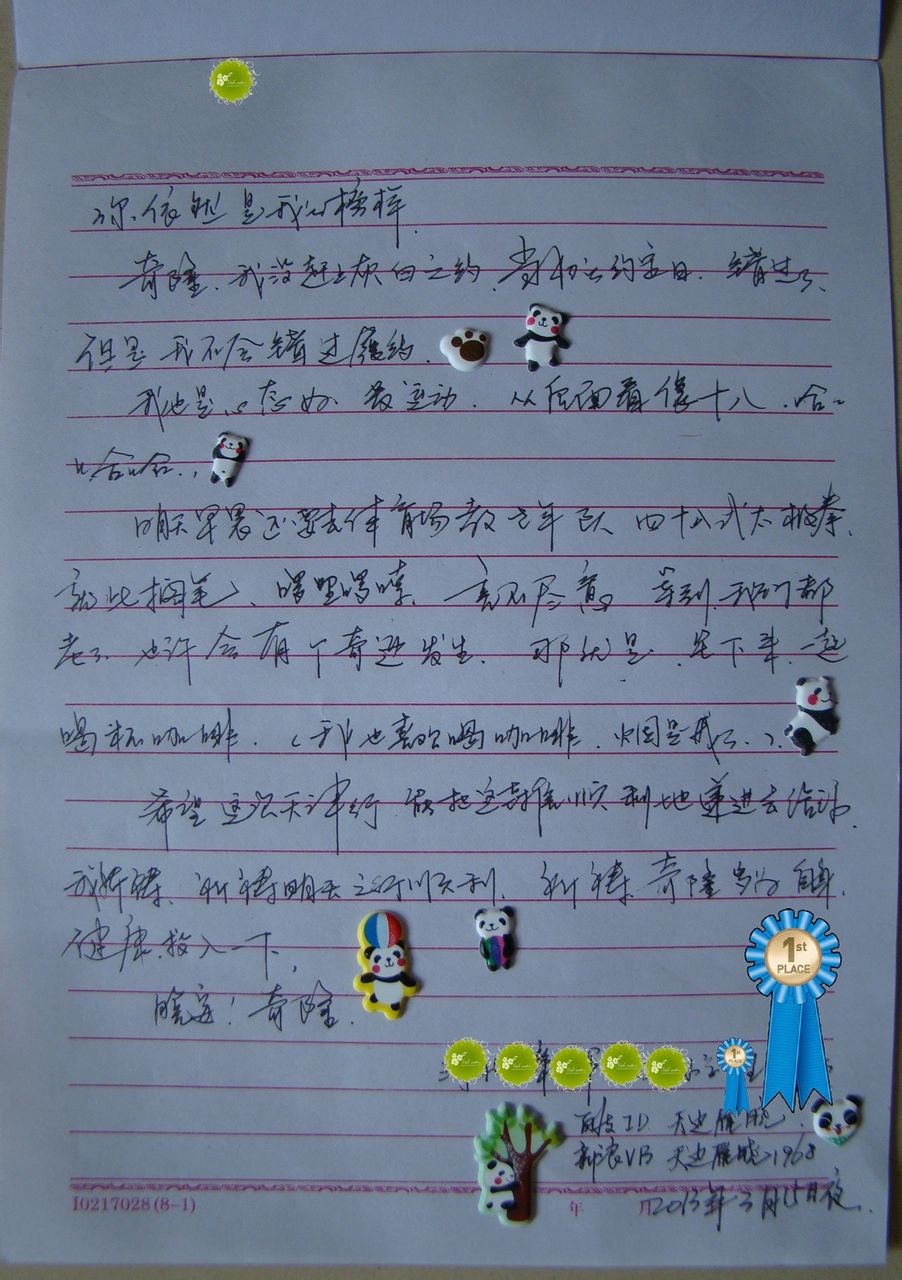 你依然是我的榜样.
奇隆.我没赶上灰白之约.当初的约定日.错过了.
但是我不会错过履约.
我也是心态好.爱运动.从后面看像十八.哈
哈哈..
明天早晨还要去体育场教老年队四十八式太极拳.
就此搁笔、啰里啰嗦.言不尽意.等到.我们都
老了.也许会有个奇迹发生.那就是.坐下来.一起
喝杯咖啡.(我也喜欢喝咖啡.烟是戒了..).
希望这次天津行能把这封信顺利地递进去给你.
我祈祷、祈祷明天之行顺利.祈祷奇隆身
健康.投入一下,
晚安!奇隆.
1st PLACE
1st PLACE
百度ID 天边雁晓.
新浪VB 天边雁晓1968
I0217028(8-1) 年 月 2013年3月15日夜.